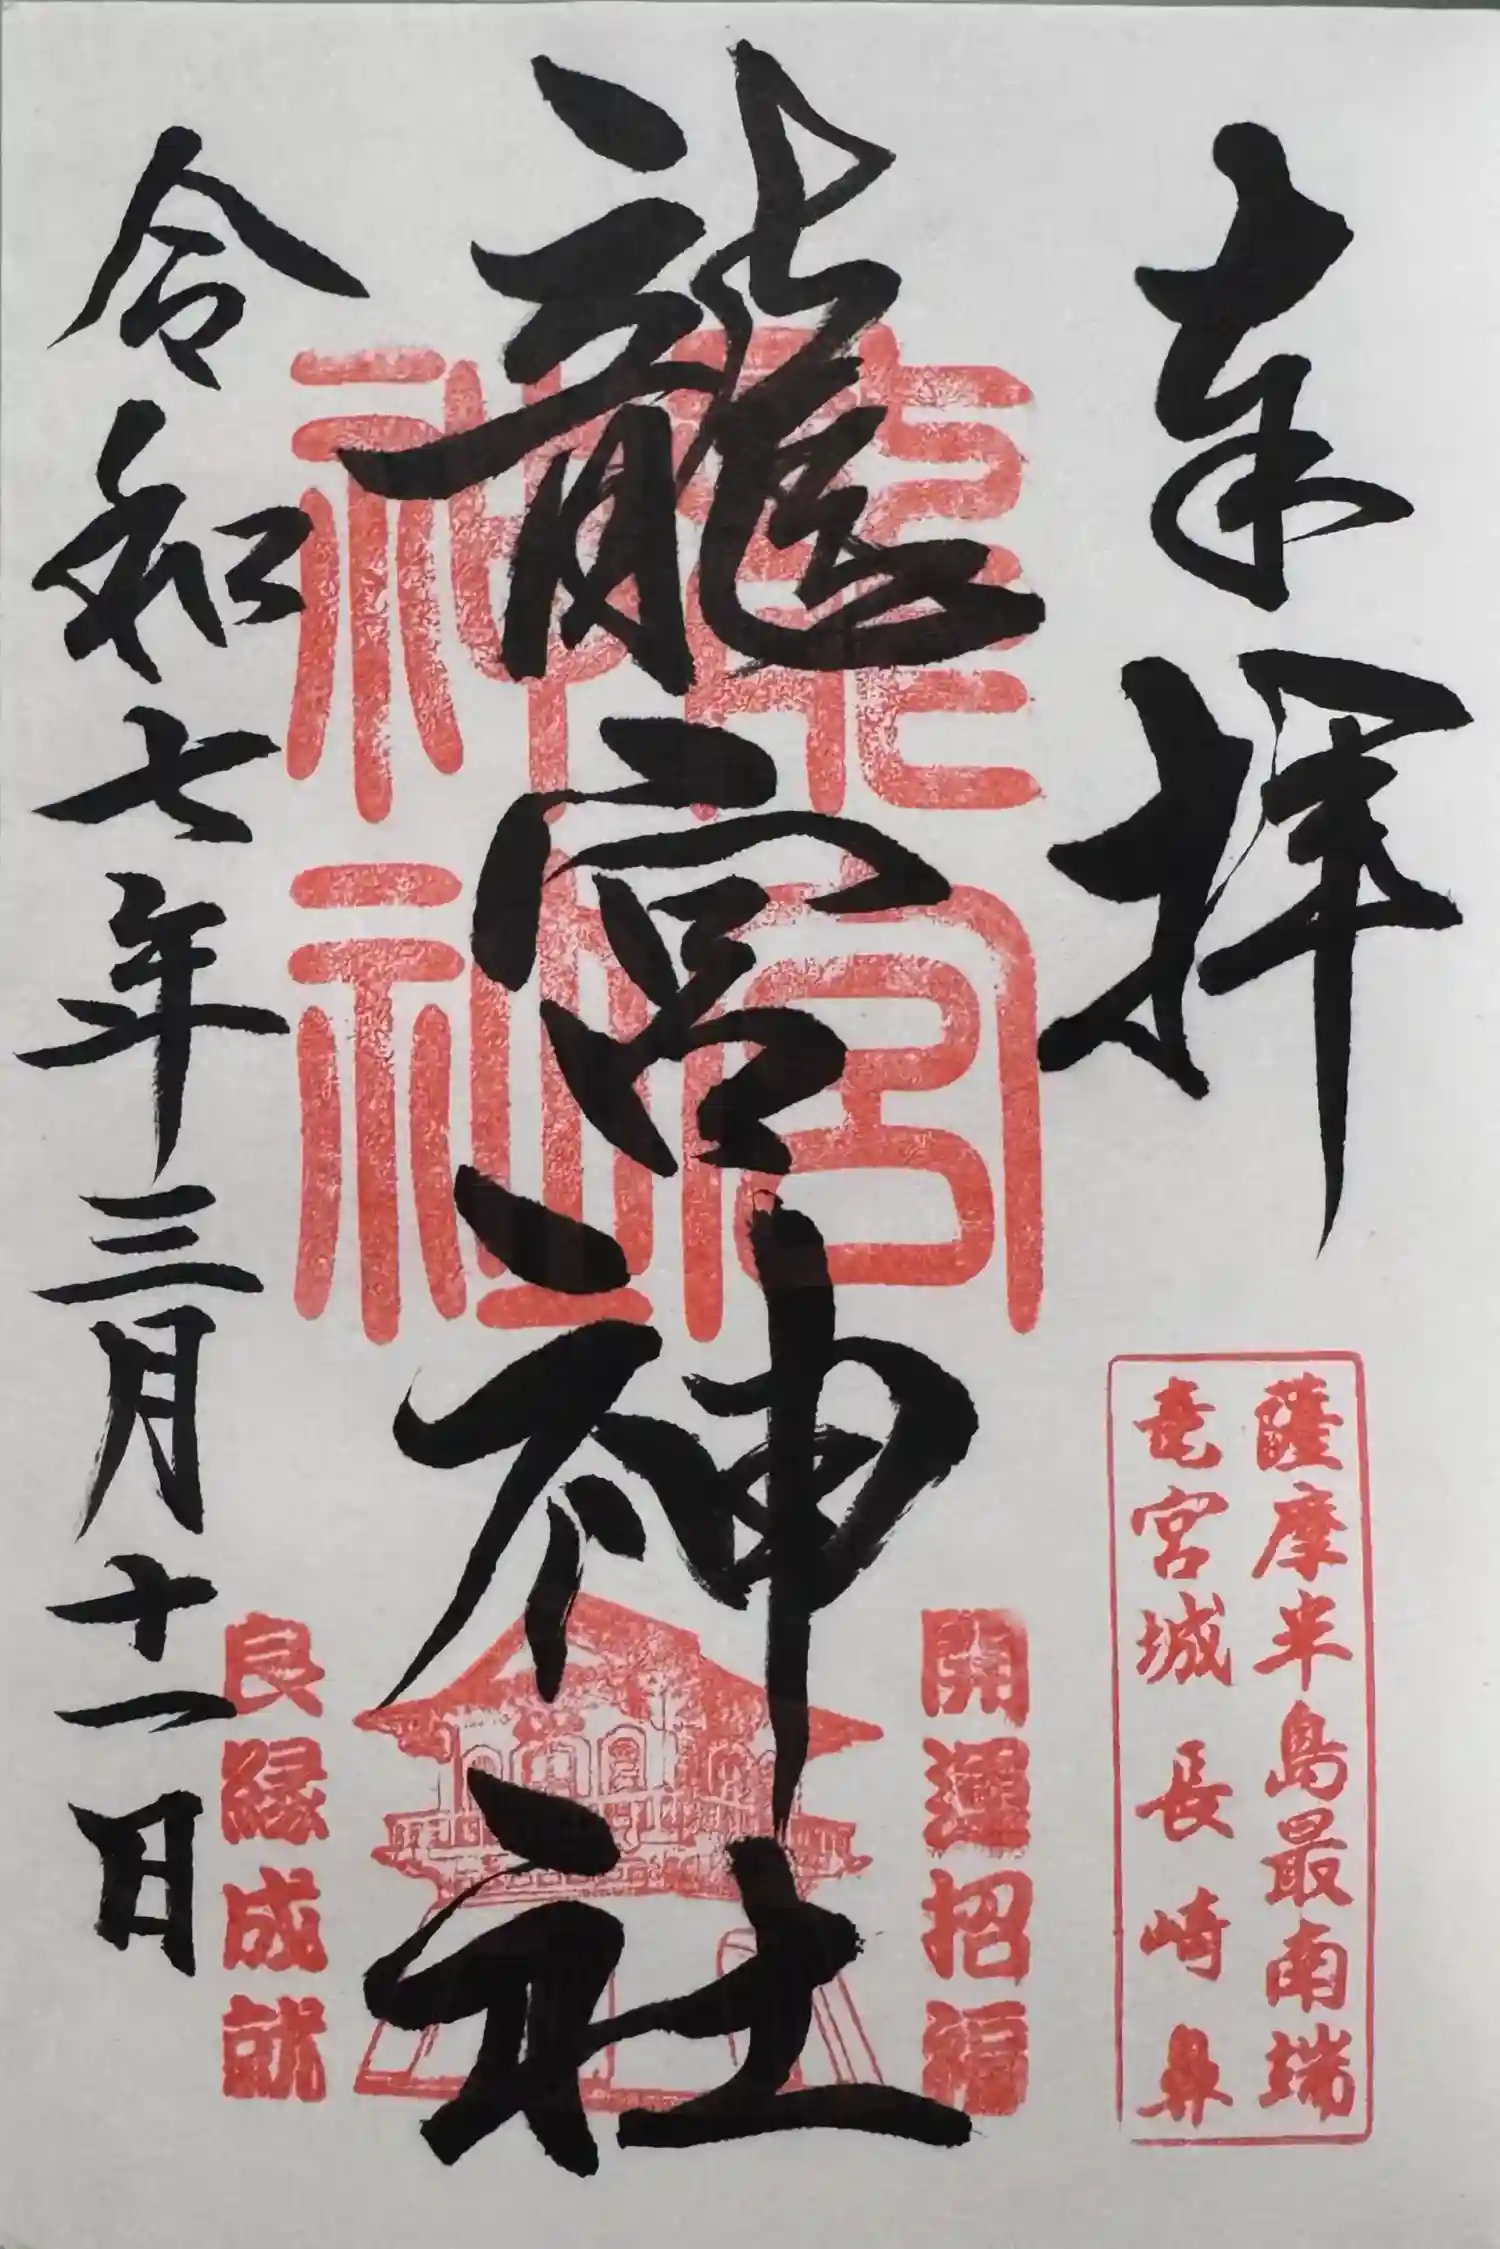 奉拝
薩摩半島最南端
竜宮城 長崎鼻
龍宮神社
龍宮
神社
開運招福
良縁成就
令和七年三月十一日